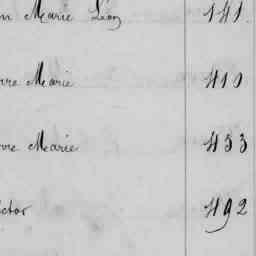 n Marie Léon 141.
rre Marie 410
rre Marie 433
ctor 492